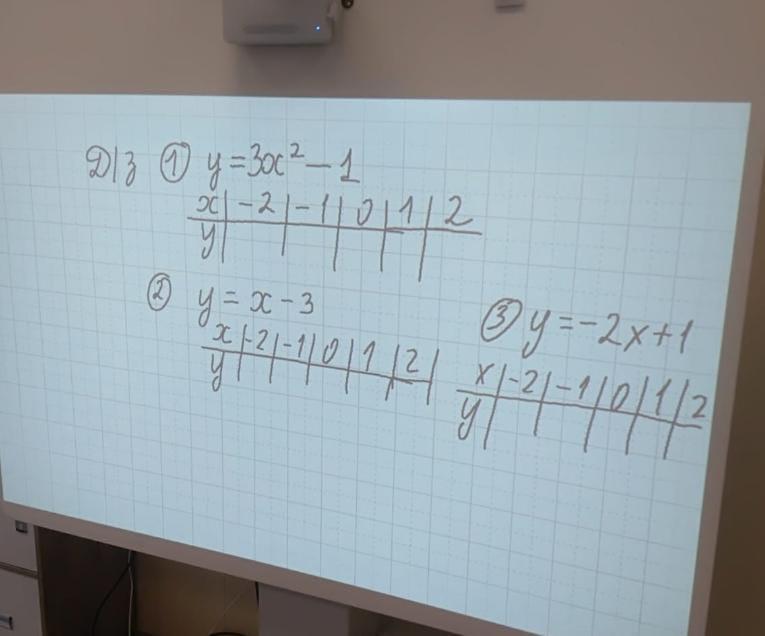 Д/з ① y = 3x² – 1
x | -2 | -1 | 0 | 1 | 2
y
② y = x - 3
x | -2 | -1 | 0 | 1 | 2
y
③ y = -2x + 1
x | -2 | -1 | 0 | 1 | 2
y